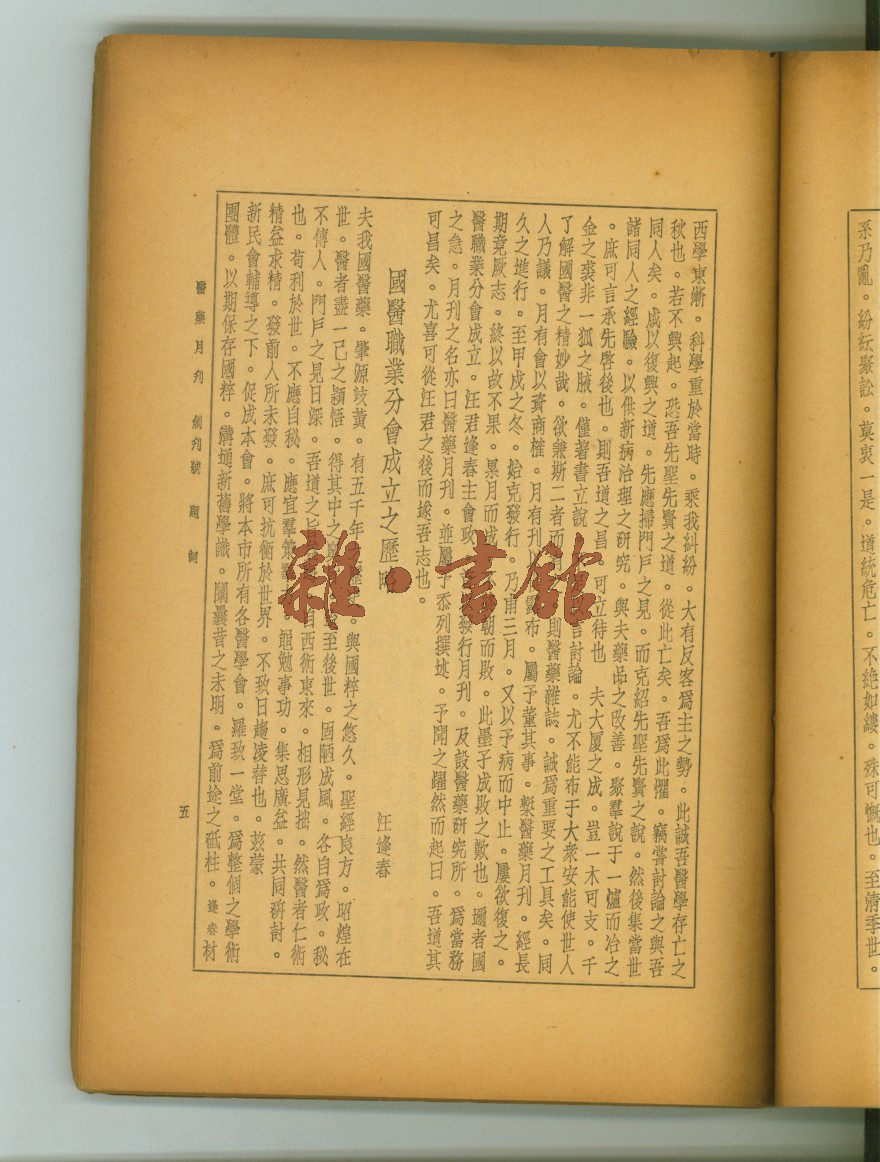 系乃亂。紛紜聚訟。莫衷一是。道統危亡。不絕如縷。殊可慨也。至淸季世。
西學東漸。科學重於當時。乘我糾紛。大有反客爲主之勢。此誠吾醫學存亡之
秋也。若不興起。恐吾先聖先賢之道。從此亡矣。吾爲此懼。竊嘗討論之與吾
同人矣。咸以復興之道。先應掃門戶之見。而克紹先聖先賢之說。然後集當世
諸同人之經驗。以供新病治理之硏究。與夫藥品之改善。聚羣說于一爐而冶之
。庶可言承先啓後也。則吾道之昌。可立待也 夫大厦之成。豈一木可支。千
金之裘非一狐之腋。僅著書立說 言討論。尤不能布于大衆安能使世人
了解國醫之精妙哉。欲兼斯二者而 則醫藥雜誌。誠爲重要之工具矣。同
人乃議。月有會以資商榷。月有刊以 布。屬予董其事。槧醫藥月刊。經長
久之進行。至甲戍之冬。始克發行。乃甫三月。又以予病而中止。屢欲復之。
期竟厥志。終以故不果。累月而成 朝而敗。此墨子成敗之歎也。邇者國
醫職業分會成立。汪君逢春主會政 發行月刊。及設醫藥硏究所。爲當務
之急。月刊之名亦曰醫藥月刊。並屬予忝列撰述。予聞之躍然而起曰。吾道其
可昌矣。尤喜可從汪君之後而遂吾志也。
國醫職業分會成立之歷略
汪逢春
夫我國醫藥。肇源歧黃。有五千年 與國粹之悠久。聖經良方。昭煌在
世。醫者盡一己之穎悟。得其中之 至後世。固陋成風。各自爲政。秘
不傳人。門戶之見日深。吾道之 自西術東來。相形見拙。然醫者仁術
也。苟利於世。不應自秘。應宜羣策 黽勉事功。集思廣益。共同硏討。
精益求精。發前人所未發。庶可抗衡於世界。不致日趨凌替也。玆蒙
新民會輔導之下。促成本會。將本市所有各醫學會。羅致一堂。爲整個之學術
團體。以期保存國粹。溝通新舊學識。闡曩昔之未明。爲前途之砥柱。逢春材
醫藥月刊 創刊號 題詞
五
雜·書館